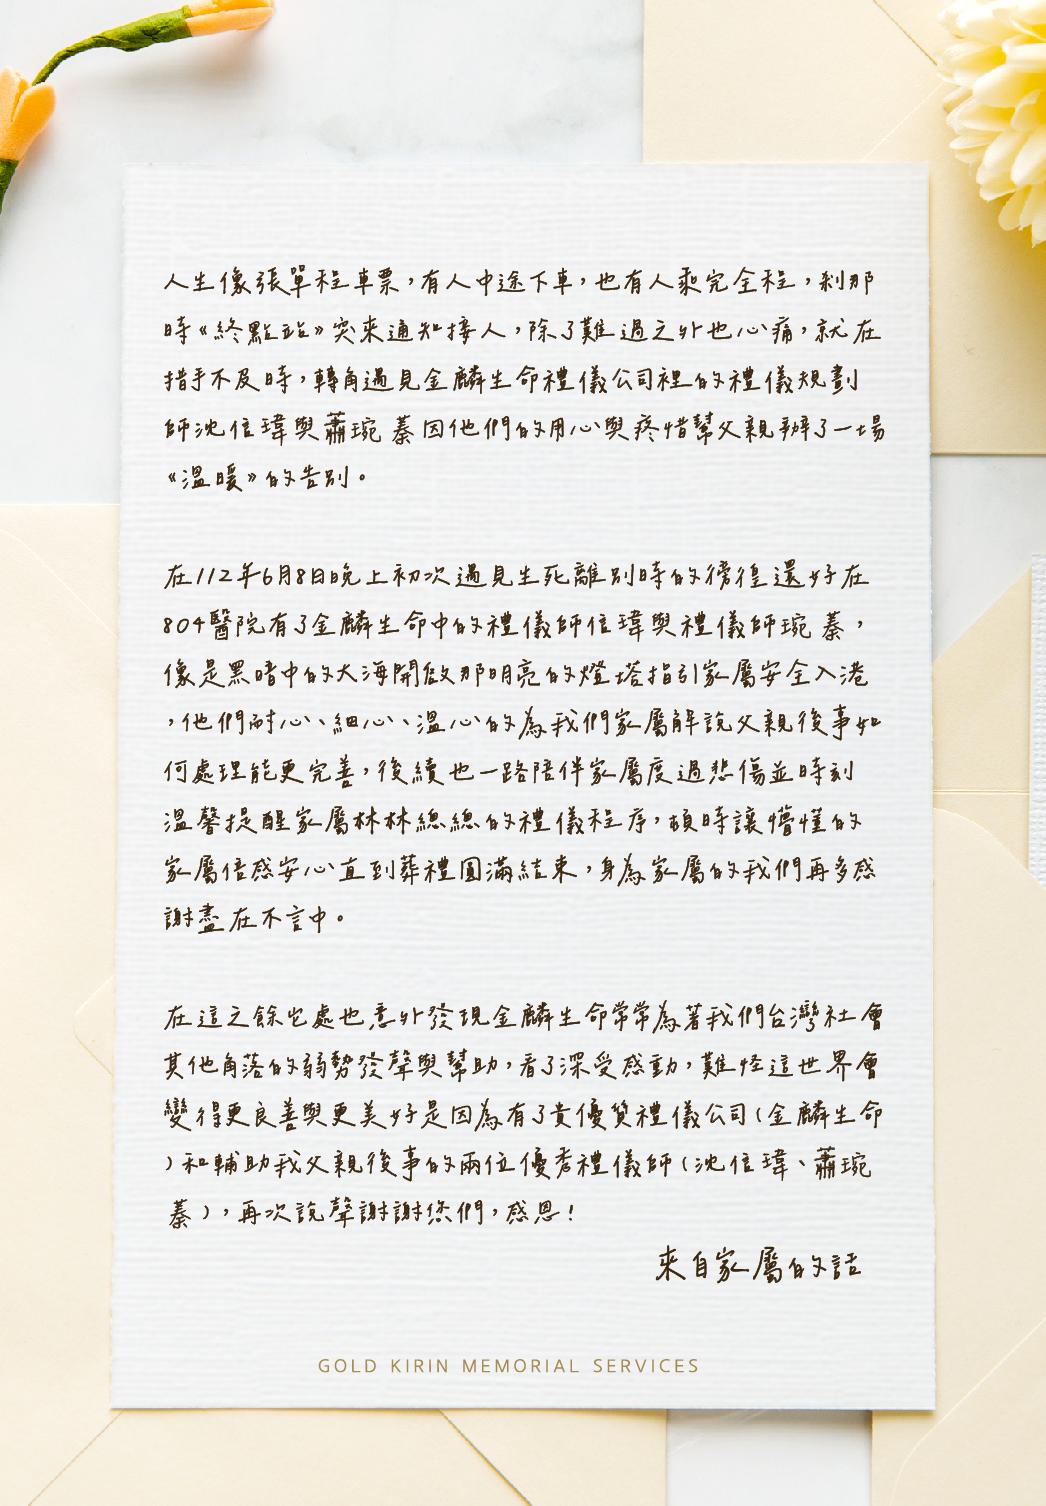 人生像張單程車票，有人中途下車，也有人乘完全程，剎那
時《終點站》突來通知接人，除了難過之外也心痛，就在
措手不及時，轉角遇見金麟生命禮儀公司裡的禮儀規劃
師沈信瑋與蕭琬蓁因他們的用心與疼惜幫父親辦了一場
《溫暖》的告別。
在112年6月8日晚上初次遇見生死離別時的徬徨還好在
804醫院有了金麟生命中的禮儀師信瑋與禮儀師琬蓁，
像是黑暗中的大海開啟那明亮的燈塔指引家屬安全入港
，他們耐心、細心、溫心的為我們家屬解說父親後事如
何處理能更完善，後續也一路陪伴家屬度過悲傷並時刻
溫馨提醒家屬林林總總的禮儀程序，頓時讓懵懂的
家屬倍感安心直到葬禮圓滿結束，身為家屬的我們再多感
謝盡在不言中。
在這之餘它處也意外發現金麟生命常常為著我們台灣社會
其他角落的弱勢發聲與幫助，看了深受感動，難怪這世界會
變得更良善與更美好是因為有了貴優質禮儀公司(金麟生命
)和輔助我父親後事的兩位優秀禮儀師(沈信瑋、蕭琬
蓁)，再次說聲謝謝您們，感恩!
來自家屬的話
GOLD KIRIN MEMORIAL SERVICES